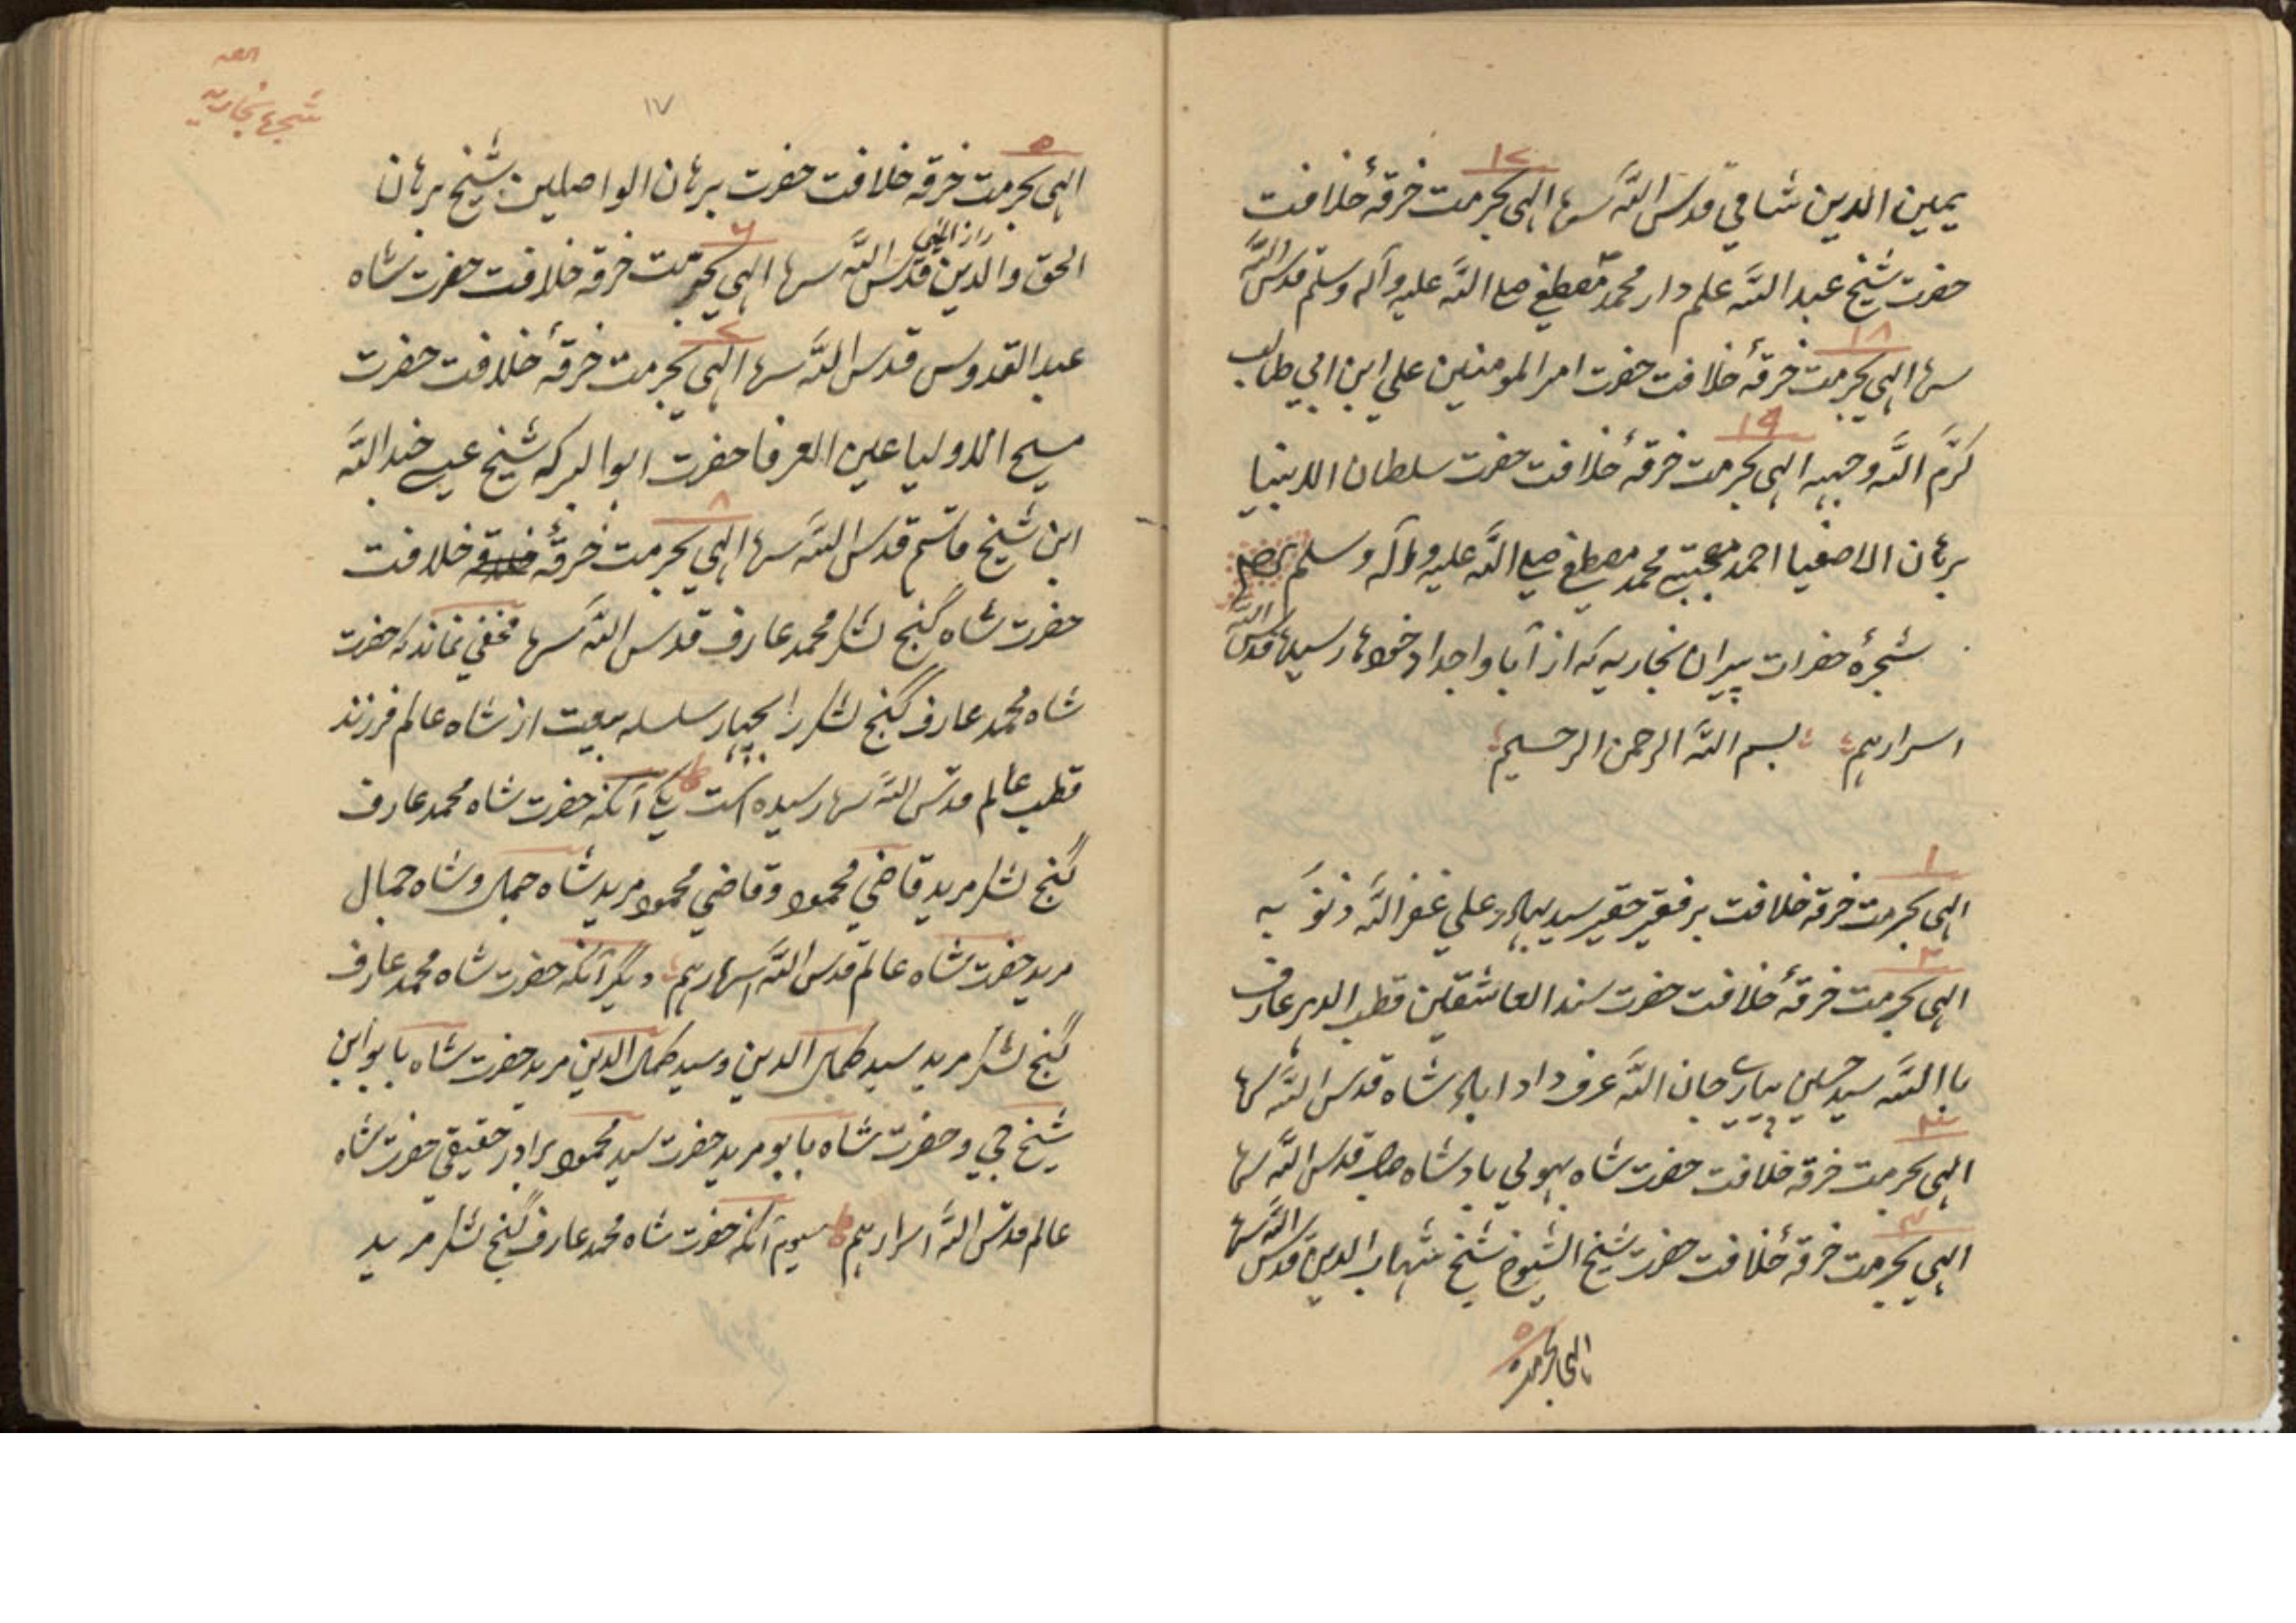 ۱۷
یمین الدین شامی قدس الله سرها الهی بحرمت خرقهٔ خلافت
حضرت شیخ عبد الله علم دار محمد مصطفی صلی الله علیه وآله وسلم قدس الله
۱۸
سرها الهی بحرمت خرقهٔ خلافت حضرت امیر المومنین علی ابن ابی طالب
۱۹
کرّم الله وجهه الهی بحرمت خرقهٔ خلافت حضرت سلطان الانبیا
برهان الاصفیا احمد مجتبی محمد مصطفی صلی الله علیه وآله وسلم
شجرهٔ حضرات پیران بخاریه که از آبا واجداد خودها رسیده قدس الله
اسرارهم بسم الله الرحمن الرحیم
۱
الهی بحرمت خرقه خلافت بر فقیر حقیر سید بهادر علی غفر الله ذنوبه
۲
الهی بحرمت خرقهٔ خلافت حضرت سند العاشقین قطب الدهر عارف
با الله سید حسین پیارے جان الله عرف دادا شاه قدس الله سرها
۳
الهی بحرمت خرقه خلافت حضرت شاه بهولی بادشاه قدس الله سرها
۴
الهی بحرمت خرقهٔ خلافت حضرت شیخ الشیوخ شیخ شهاب الدین قدس الله سرها
۵
الهی بحرمت
شجرۂ بخاریه
۱۷
۵
الهی بحرمت خرقه خلافت حضرت برهان الواصلین شیخ برهان
راز الهی
۶
الحق والدین قدس الله سرها الهی بحرمت خرقه خلافت حضرت شاه
۷
عبد القدوس قدس الله سرها الهی بحرمت خرقهٔ خلافت حضرت
مسیح الاولیا عین العرفا حضرت ابو البرکه شیخ عیسی جند الله
۸
ابن شیخ قاسم قدس الله سرها الهی بحرمت خرقهٔ خلافت
حضرت شاه گنج لشکر محمد عارف قدس الله سرها مخفی نماند که حضرت
شاه محمد عارف گنج لشکر را بچهار سلسله بیعت از شاه عالم فرزند
قطب عالم قدس الله سرها رسیده است یکی آنکه حضرت شاه محمد عارف
گنج لشکر مرید قاضی محمود وقاضی محمود مرید شاه جمال وشاه جمال
مرید حضرت شاه عالم قدس الله اسرارهم دیگر آنکه حضرت شاه محمد عارف
گنج لشکر مرید سید کمال الدین وسید کمال الدین مرید حضرت شاه بابو ابن
شیخ جی وحضرت شاه بابو مرید حضرت سید محمود برادر حقیقی حضرت شاه
عالم قدس الله اسرارهم سیوم آنکه حضرت شاه محمد عارف گنج لشکر مرید